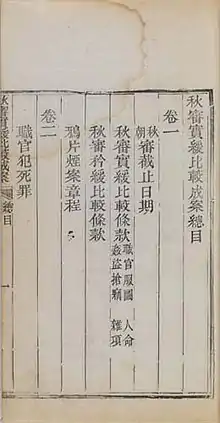 秋審實緩比較成案總目
卷一
秋朝審截止日期
秋審實緩比較條款 職官 服圖 人命 姦盜搶竊 雜項
秋審矜緩比較條款
鴉片煙案章程
卷二
職官犯死罪
秋審實緩比較成案 總目